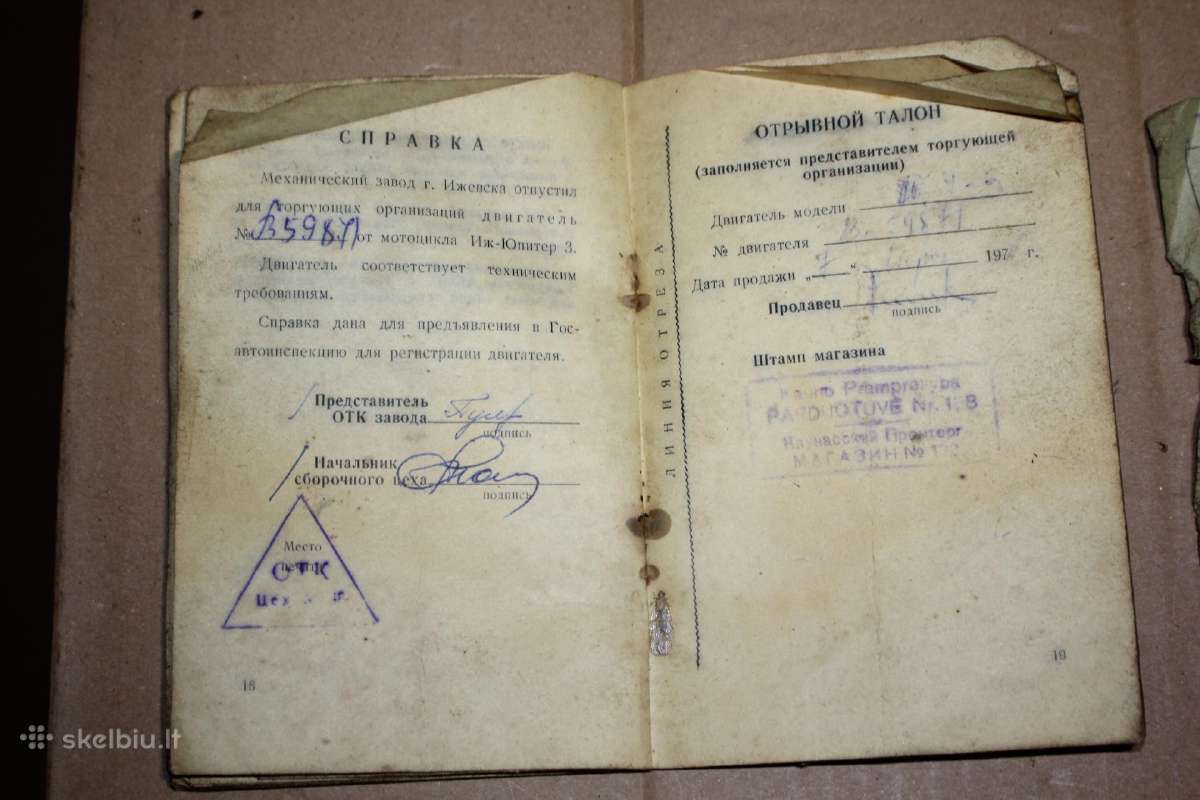 СПРАВКА
Механический завод г. Ижевска отпустил
для торгующих организаций двигатель
№ В59871 от мотоцикла Иж-Юпитер 3.
Двигатель соответствует техническим
требованиям.
Справка дана для предъявления в Гос-
автоинспекцию для регистрации двигателя.
Представитель
ОТК завода
подпись
Начальник
сборочного цеха
подпись
Место
ОТК
Цех
18
ЛИНИЯ ОТРЕЗА
ОТРЫВНОЙ ТАЛОН
(заполняется представителем торгующей
организации)
Двигатель модели
№ двигателя
Дата продажи „ “ 197 г.
Продавец
подпись
Штамп магазина
Kauno Pramprekyba
PARDUOTUVĖ Nr.
Каунасский Промторг
МАГАЗИН №
19
skelbiu.lt